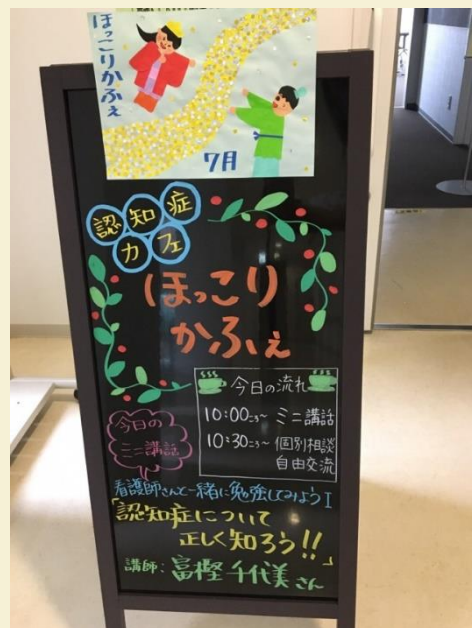 ほっこりかふぇ
7月
認知症
カフェ
ほっこり
かふぇ
今日の流れ
10:00ごろ~ ミニ講話
10:30ごろ~ 個別相談
自由交流
今日の
ミニ講話
看護師さんと一緒に勉強してみようⅠ
「認知症について
正しく知ろう!!」
講師:富樫千代美さん